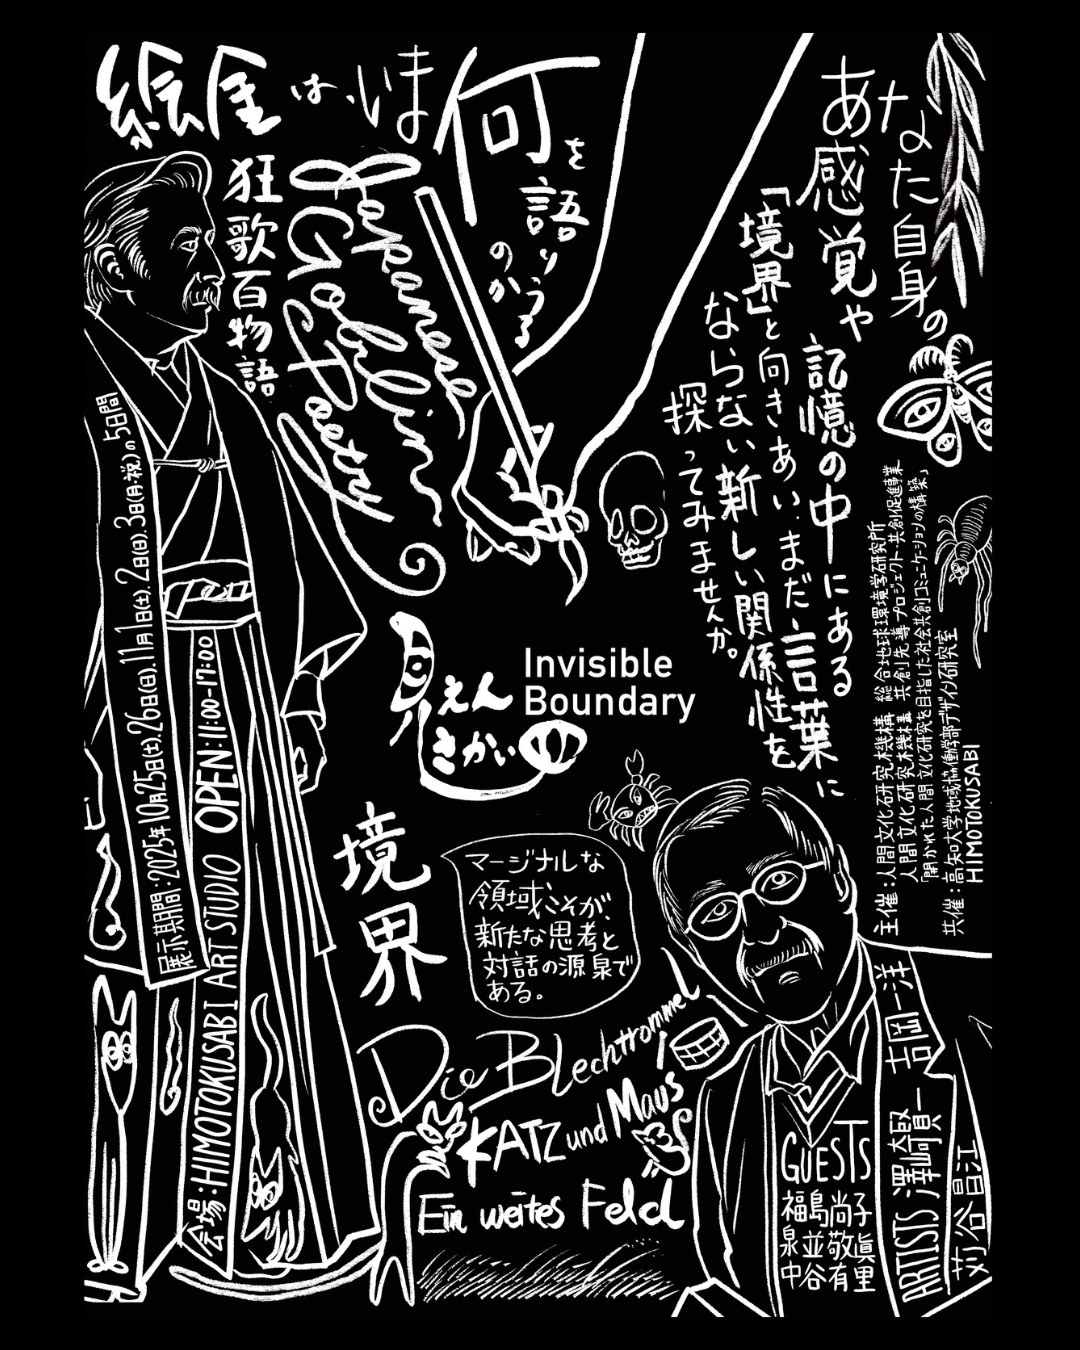 絵金は、いま何を語りうるのか
狂歌百物語
Japanese Goblin Poetry
あなた自身の
感覚や
記憶の中にある
まだ言葉に
ならない新しい関係性を
「境界」と向きあい、
探ってみませんか。
見えんさかい
Invisible
Boundary
境界
マージナルな
領域こそが、
新たな思考と
対話の源泉で
ある。
Die Blechtrommel
KATZ und Maus
Ein weites Feld
展示期間:2025年10月25日(土).26日(日).11月1日(土).2日(日).3日(月・祝)の5日間
会場:HIMOTOKUSABI ART STUDIO OPEN:11:00-17:00
主催:人間文化研究機構 総合地球環境学研究所
人間文化研究機構 共創先導プロジェクト 共創促進事業
「開かれた人間文化研究を目指した社会共創コミュニケーションの構築」
共催:高知大学地域協働学部デザイン研究室
HIMOTOKUSABI
GUESTS
福島尚子
泉並敬眞
中谷有里
ARTISTS 澤崎賢一
吉岡洋
苅谷昌江